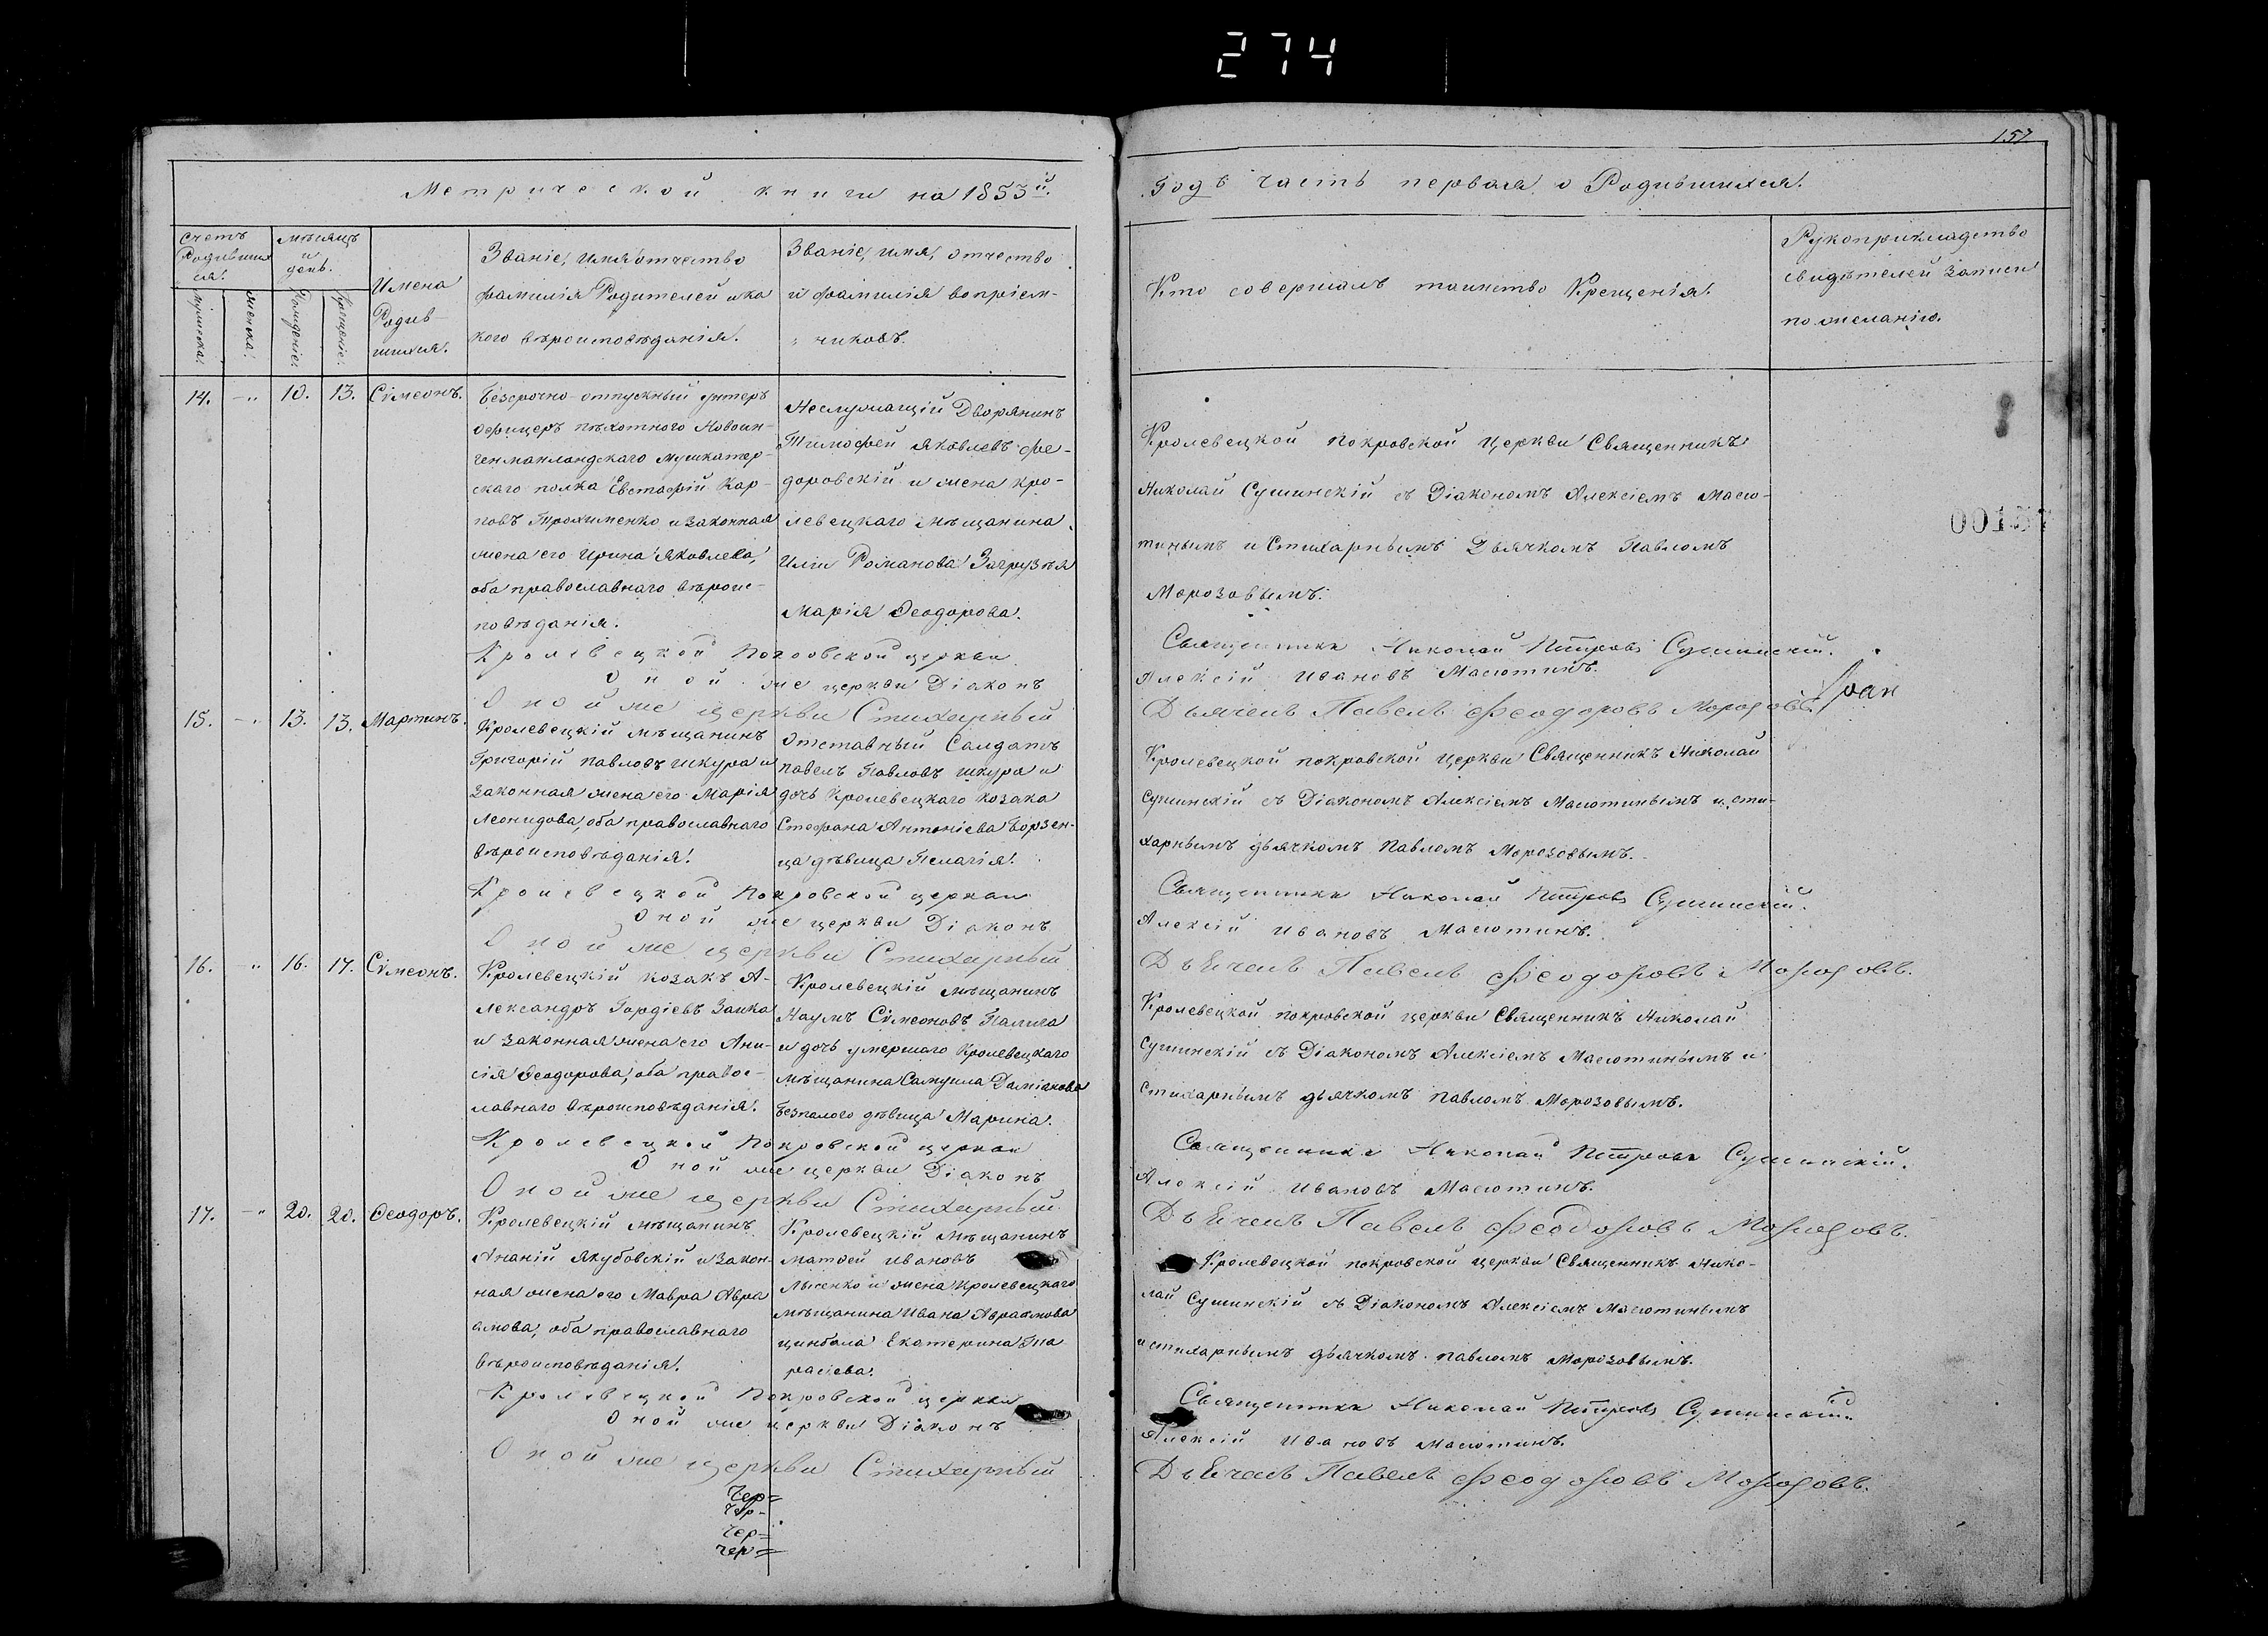 274
157.
Метрической книги на 1853й.
Годъ часть первая о Родившихся.
Счетъ
Родивших
ся.
мѣсяцъ
и
день.
мужеска.
женска.
Рожденіе.
Крещеніе.
Имена
Родив-
шихся.
Званіе, имя отчество
фамилія Родителей и ка
кого вѣроисповѣданія.
Званіе, имя, отчество
и фамилія вопріем-
никовъ.
Кто совершалъ таинство Крещенія.
Рукоприкладство
свидѣтелей записи
по желанію.
14. -„ 10. 13. Сѵмеонъ.
Безсрочно-отпускный унтеръ
офицеръ пѣхотного Новоин-
генманландскаго мушкатер-
скаго полка Евстафій Кар-
повъ Трохименко и законная
жена его Ирина Яковлева,
оба православнаго вѣроис-
повѣданія.
Неслужащій Дворянинъ
Тимофей Яковлевъ Фе-
доровскій и жена кро-
левецкаго мѣщанина
Или Романова Загрузѣя
Марія Ѳеодорова.
Кролевецкой покровской Церкви Священникъ
Николай Сушинскій съ Діакономъ Алексіемъ Масю-
тинымъ и Стихарнымъ Дьячкомъ Павломъ
Морозовымъ.
Кролевецкой Покровской церкви Священникъ Николай Петровъ Сушинскій.
Оной же церкви Діаконъ Алексій Ивановъ Масютинъ.
Оной же церкви Стихарный Дьячекъ Павелъ Феодоровъ Морозовъ.
15. -„ 13. 13. Мартинъ.
Кролевецкій мѣщанинъ
Григорій Павловъ Шкура и
законная жена его Марія
Леонидова, оба православнаго
вѣроисповѣданія.
Отставный Салдатъ
Павелъ Павловъ Шкура и
дочь Кролевецкаго козака
Стефана Антоніева Борзен-
ца дѣвица Пелагія.
Кролевецкой покровской Церкви Священникъ Николай
Сушинскій съ Діакономъ Алексіемъ Масютинымъ и сти-
харнымъ дьячкомъ Павломъ Морозовымъ.
Кролевецкой Покровской церкви Священникъ Николай Петровъ Сушинскій.
Оной же церкви Діаконъ Алексій Ивановъ Масютинъ.
Оной же церкви Стихарный Дьячекъ Павелъ Феодоровъ Морозовъ.
16. -„ 16. 17. Сѵмеонъ.
Кролевецкій козакъ А-
лександръ Гордіевъ Заика
и законная жена его Ани-
сія Ѳеодорова, оба правос-
лавнаго вѣроисповѣданія.
Кролевецкій мѣщанинъ
Наумъ Сѵмеоновъ Палига
и дочь умершаго Кролевецкаго
мѣщанина Самуила Даміанова
Безпалого дѣвица Марина.
Кролевецкой покровской церкви Священникъ Николай
Сушинскій съ Діакономъ Алексіемъ Масютинымъ и
стихарнымъ дьячкомъ Павломъ Морозовымъ.
Кролевецкой Покровской церкви Священникъ Николай Петровъ Сушинскій.
Оной же церкви Діаконъ Алексій Ивановъ Масютинъ.
Оной же церкви Стихарный Дьячекъ Павелъ Феодоровъ Морозовъ.
17. -„ 20. 20. Ѳеодоръ.
Кролевецкій мѣщанинъ
Ананій Якубовскій и закон-
ная жена его Мавра Авра
амова, оба православнаго
вѣроисповѣданія.
Кролевецкій мѣщанинъ
Матѳей Ивановъ
Лысенко и жена Кролевецкаго
мѣщанина Ивана Авраамова
Цинбала Екатерина Та
расіева.
Кролевецкой покровской церкви Священникъ Нико-
лай Сушинскій съ Діакономъ Алексіемъ Масютинымъ
и стихарнымъ дьячкомъ Павломъ Морозовымъ.
Кролевецкой Покровской церкви Священникъ Николай Петровъ Сушинскій.
Оной же церкви Діаконъ Алексій Ивановъ Масютинъ.
Оной же церкви Стихарный Дьячекъ Павелъ Феодоровъ Морозовъ.
Чер=
Чер-
Чер=
чер=
00157